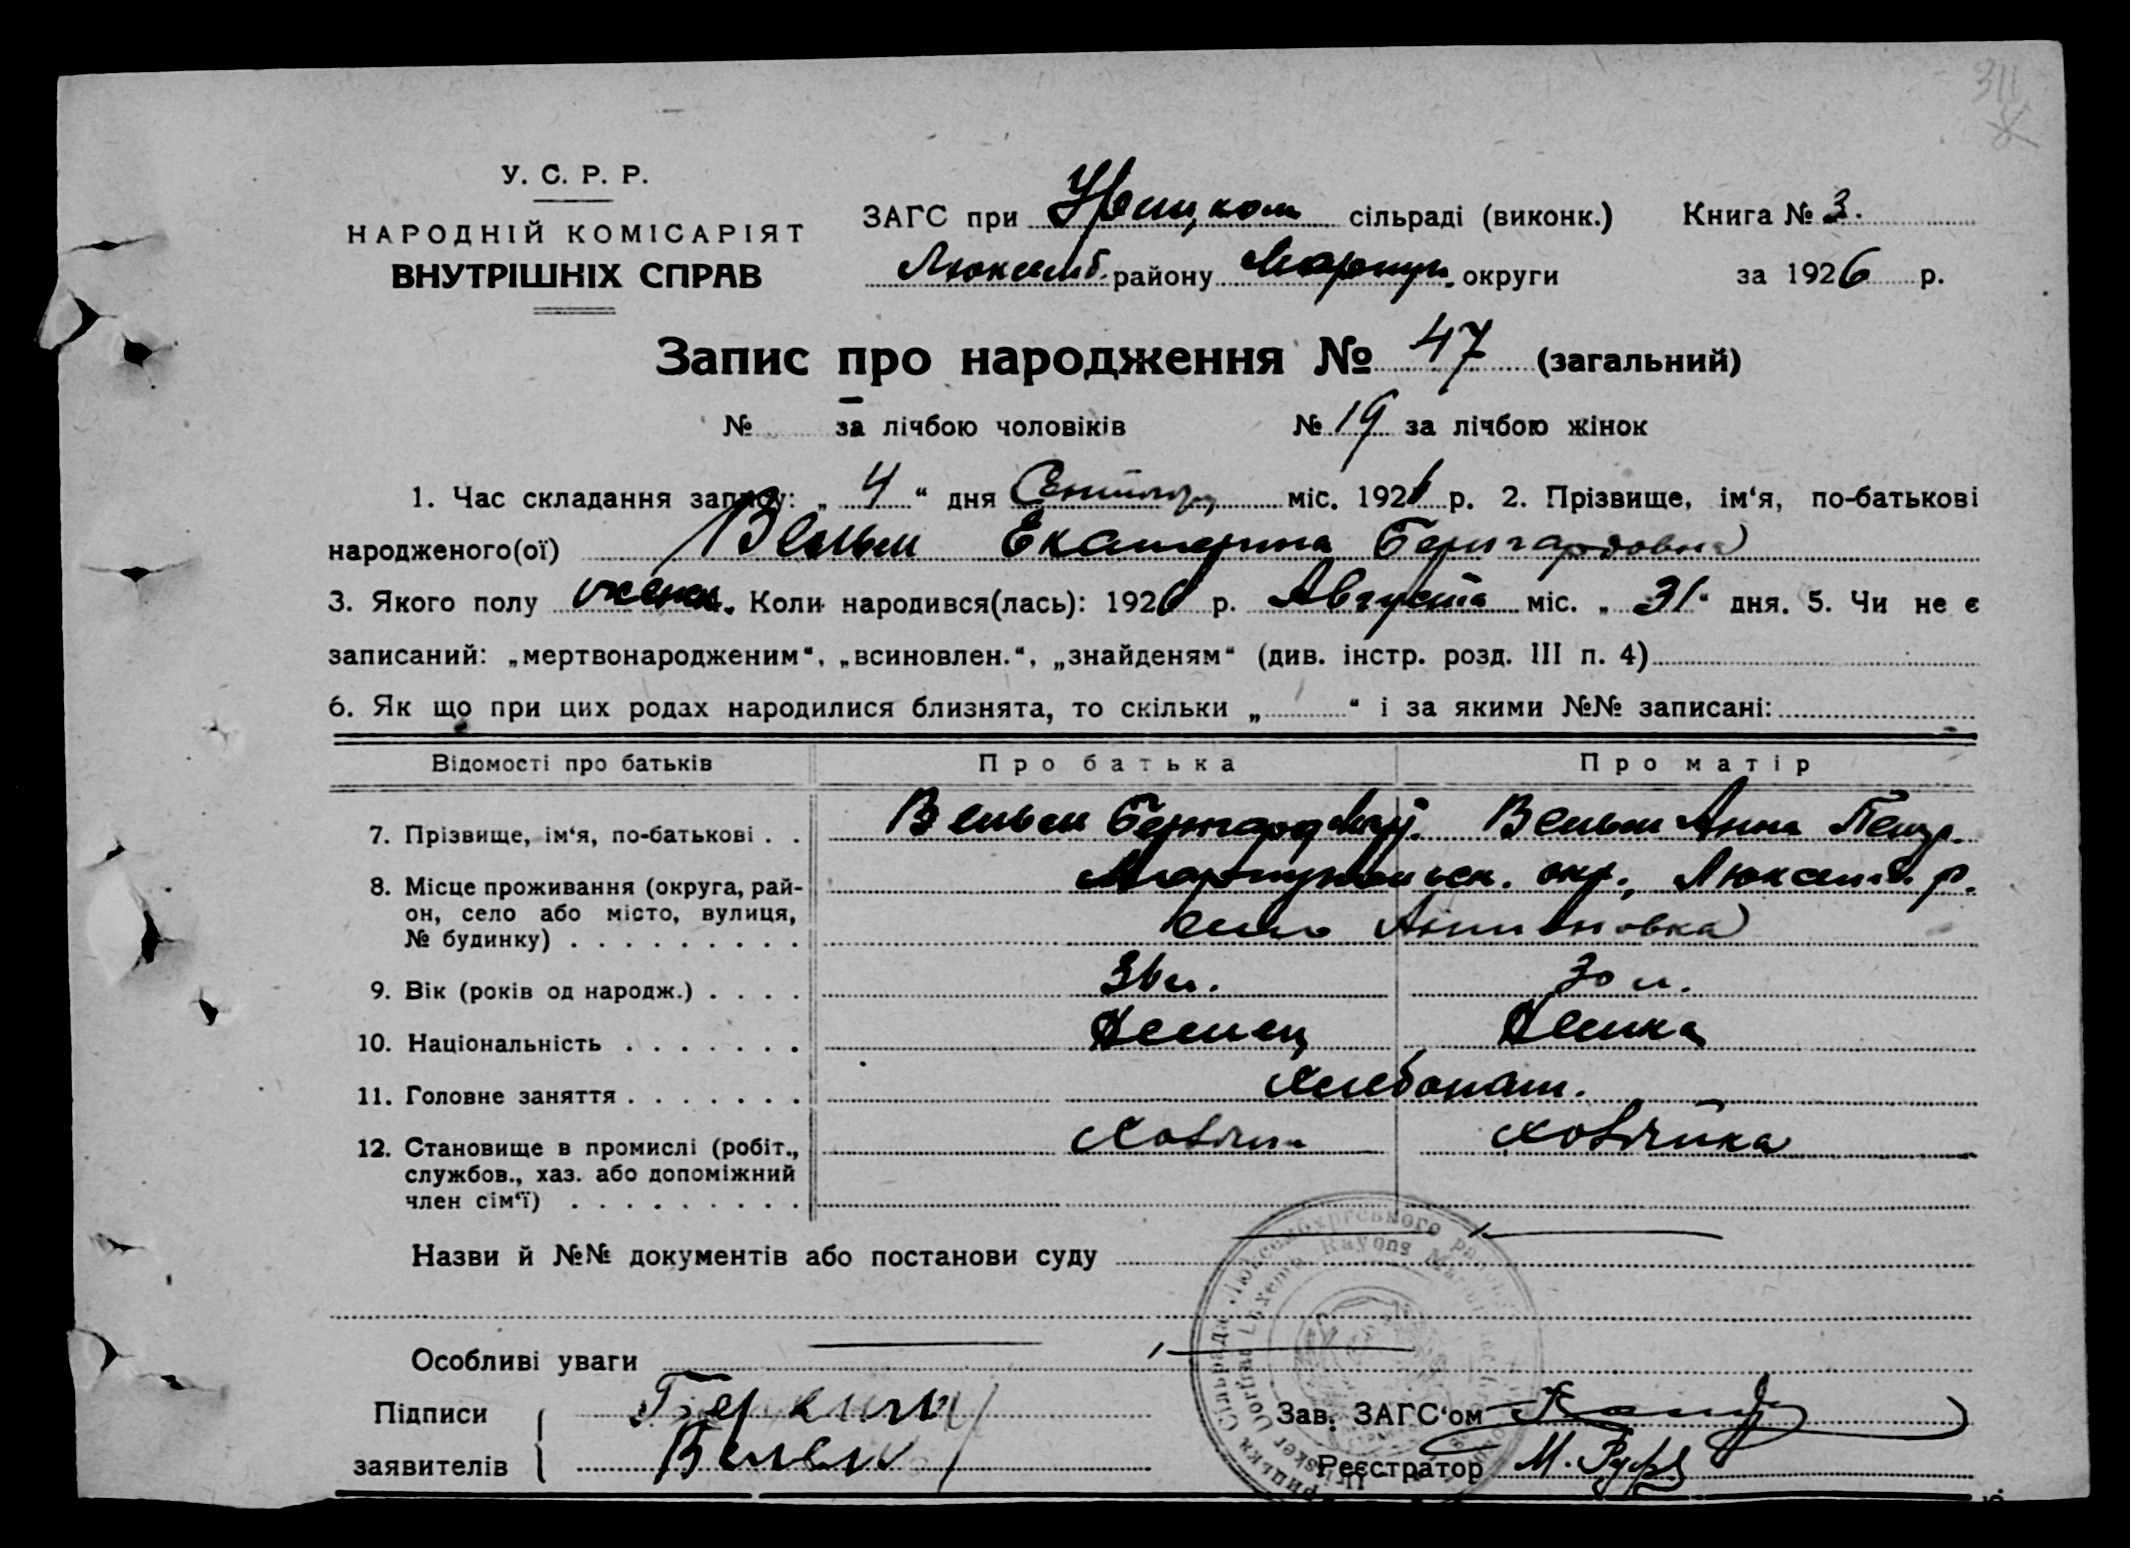 311
У. С. Р. Р.
НАРОДНІЙ КОМІСАРІЯТ
ВНУТРІШНІХ СПРАВ
ЗАГС при сільраді (виконк.) Книга № 3.
Люксемб. району Мариуп. округи за 1926 р.
Запис про народження № 47 (загальний)
№ – за лічбою чоловіків № 19 за лічбою жінок
1. Час складання запису: „ 4 “ дня Сентября міс. 1926 р. 2. Прізвище, ім‘я, по-батькові
народженого(ої) Вельм Екатерина Бернгардовна
3. Якого полу женск. Коли народився(лась): 1926 р. Августа міс. „ 31 “ дня. 5. Чи не є
записаний: „мертвонародженим“, „всиновлен.“, „знайденям“ (див. інстр. розд. III п. 4)
6. Як що при цих родах народилися близнята, то скільки „ “ і за якими №№ записані:
Відомості про батьків Про батька Про матір
7. Прізвище, ім‘я, по-батькові . . Вельм Бернгард Вельм Анна Петр.
8. Місце проживання (округа, рай- Мариупольск. окр., Люксемб. р.
он, село або місто, вулиця, село Антоновка
№ будинку)
9. Вік (років од народж.) . . . . 36 л. 30 л.
10. Національність . . . . . . . Немец Немка
11. Головне заняття . . . . . . . Хлебопаш.
12. Становище в промислі (робіт., хозяин хозяйка
службов., хаз. або допоміжний
член сім‘ї) . . . . . . . . .
Назви й №№ документів або постанови суду
Особливі уваги
Підписи
заявителів Вельм
Зав. ЗАГС‘ом
Реєстратор М.
Сільрада Люксембургського
Rayons